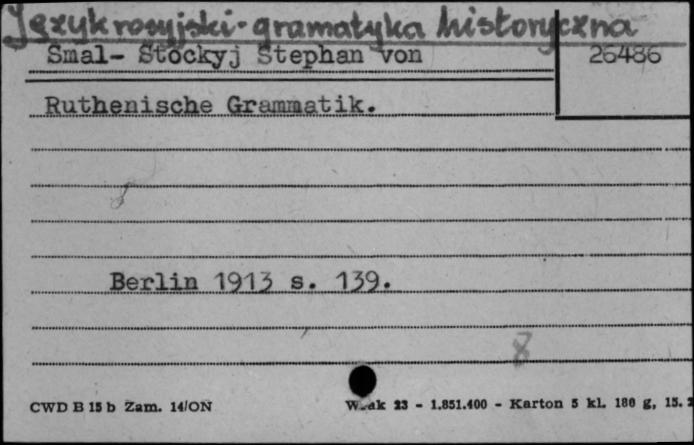 Język rosyjski - gramatyka historyczna
Smal- Stockyj Stephan von
26486
Ruthenische Grammatik.
Berlin 1913 s. 139.
8
CWD B 15 b Zam. 14/ON
23 - 1.851.400 - Karton 5 kl. 180 g, 15.